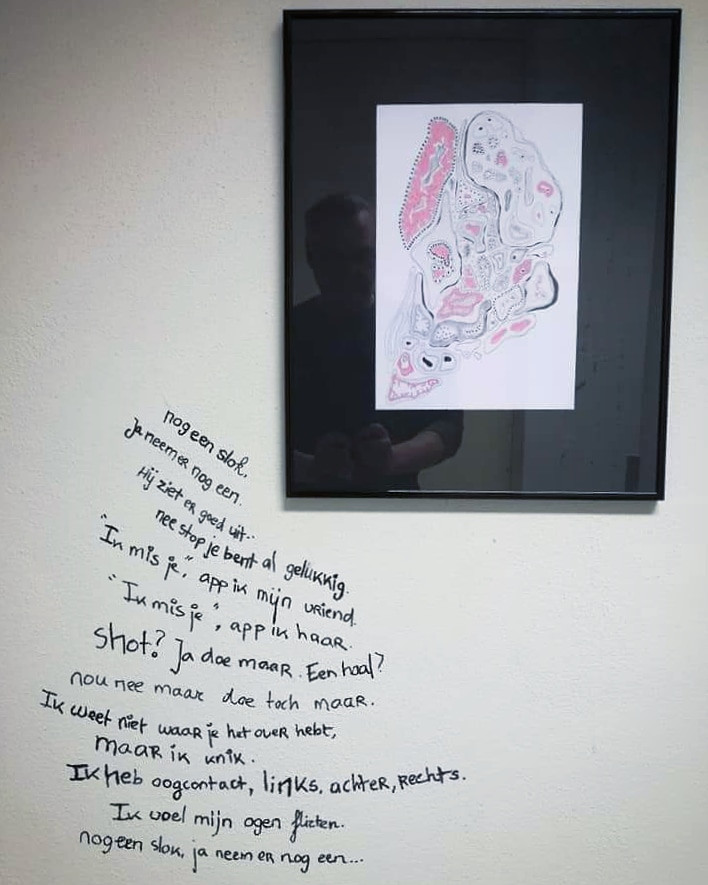 nog een slok,
Ja neem er nog een.
Hij ziet er goed uit..
nee stop je bent al gelukkig.
"Ik mis je", app ik mijn vriend.
"Ik mis je", app ik haar.
Shot? Ja doe maar. Een haal?
nou nee maar doe toch maar.
Ik weet niet waar je het over hebt,
maar ik knik.
Ik heb oogcontact, links, achter, rechts.
Ik voel mijn ogen flirten.
nog een slok, ja neem er nog een...